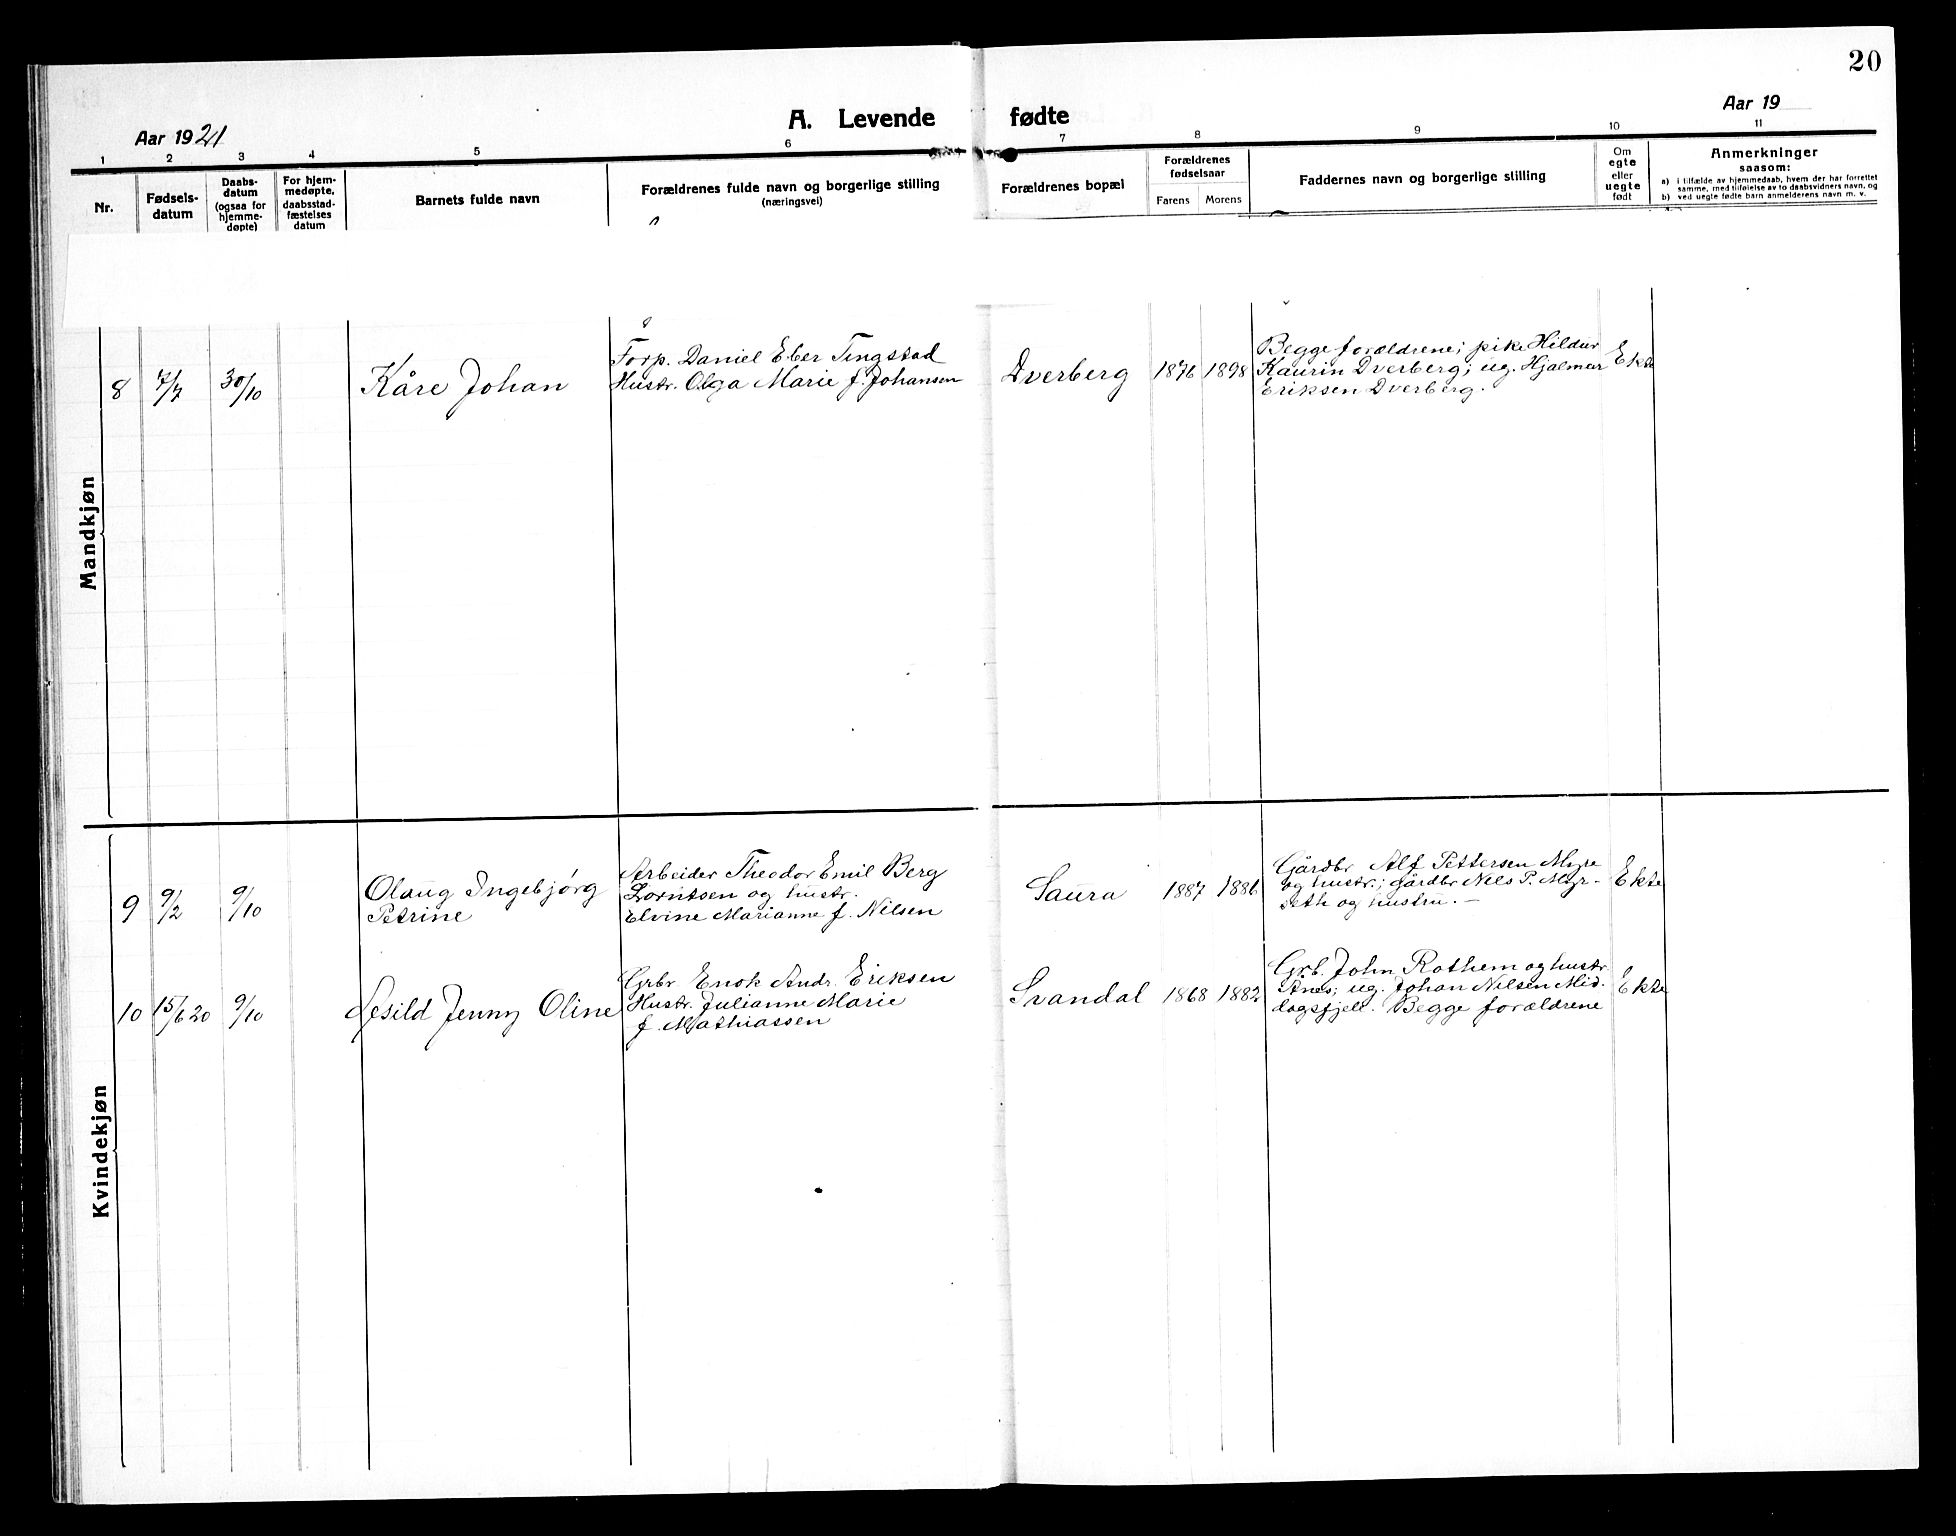 20
Aar 1921
A. Levende fødte
Aar 19
1 2 3 4 5 6 7 8 9 10 11
Nr.
Fødsels-
datum
Daabs-
datum
(ogsaa for
hjemme-
døpte)
For hjem-
medøpte,
daabsstad-
fæstelses
datum
Barnets fulde navn
Forældrenes fulde navn og borgerlige stilling
(næringsvei)
Forældrenes bopæl
Forældrenes
fødselsaar
Farens Morens
Faddernes navn og borgerlige stilling
Om
egte
eller
uegte
født
Anmerkninger
saasom:
a) i tilfælde av hjemmedaab, hvem der har forrettet
samme, med tilføielse av to daabsvidners navn, og
b) ved uegte fødte barn anmelderens navn m. v.
Mandkjøn
8 7/7 30/10
Kåre Johan
Forp. Daniel Eber Tingstad
Hustr. Olga Marie f. Johansen
Dverberg 1876 1898
Begge forældrene; pike Hildur
Kaurin Dverberg; ug. Hjalmar
Eriksen Dverberg.
Ekte
Kvindekjøn
9 9/2 9/10
Olaug Ingebjørg
Petrine
Arbeider Theodor Emil Berg
Lorntsen og hustr.
Elvine Marianne f. Nilsen
Saura 1887 1886
Gårdbr Alf Pettersen Myre
og hustr.; gårdbr Nels P. Myr-
seth og hustru. —
Ekte
10 15/6 20 9/10
Aesild Jenny Oline
Grbr Enok Andr. Eriksen
Hustr. Julianne Marie
f. Mathiassen
Svandal 1868 1882
Grb. John Rothem og hustr.
Ånes; ug. Johan Nilsen Mid-
dagsfjell. Begge forældrene
Ekte